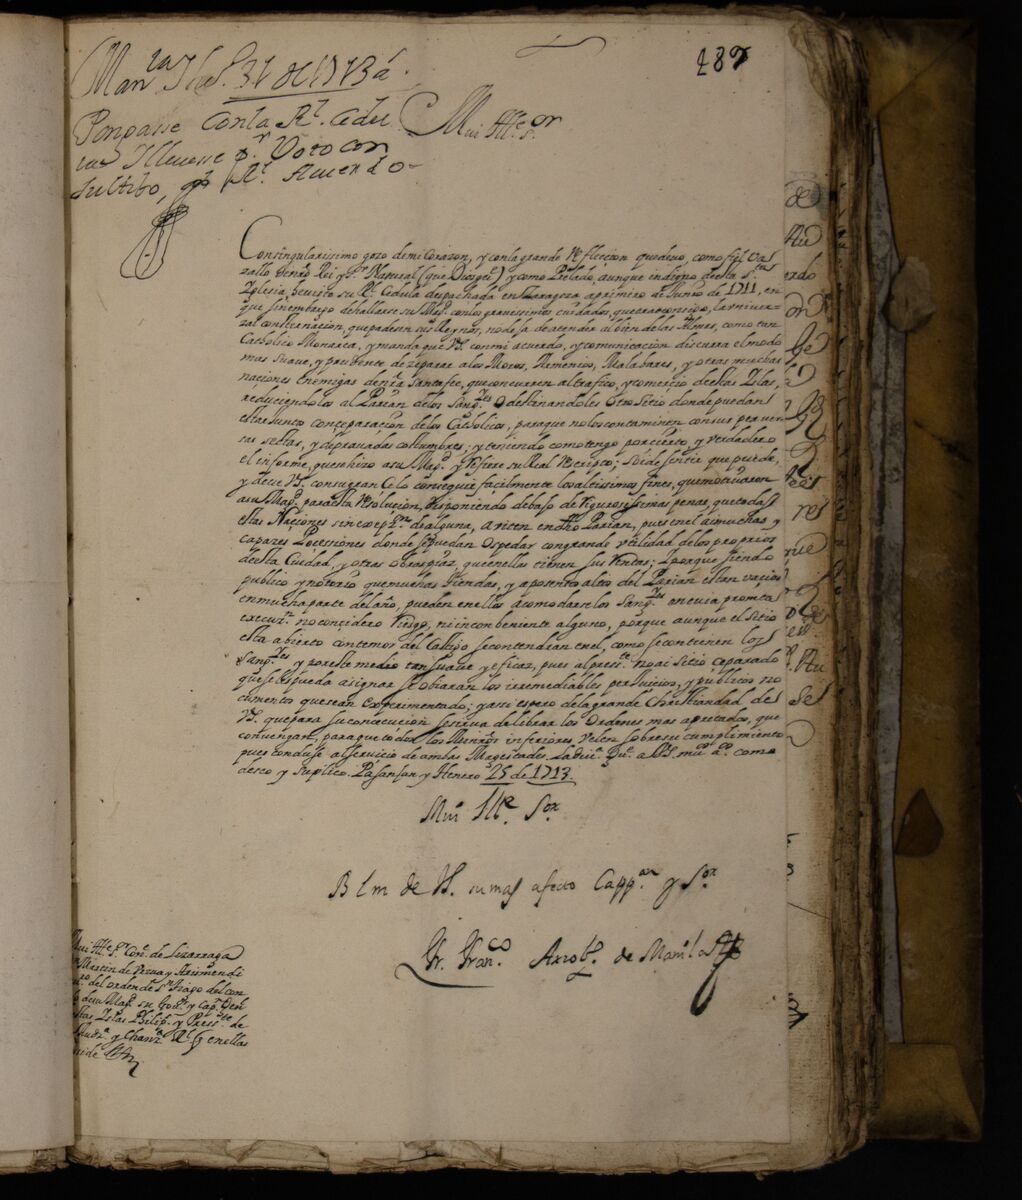 487
Man.la y Hen.o 31 de 1713 a.s
Pongasse con la R.l Cedu
la y llevese p.r Voto con
sultibo, al R.l Acuerdo
Mui Ill.e S.or
Con singularissimo gozo de mi Corazon, y con la grande Reflecion que devo, como fiel Va
zallo de nro Rei y S.r Natural (que Dios gu.e) y como Prelado, aunque indigno de esta S.ta
Iglesia, he visto su R.l Cedula despachada en Zaragoza a primero de Junio de 1711, en
que sin embargo de hallarse su Mag.d con los gravissimos cuidados, que trae consigo, la univer-
zal consternacion, que padesen sus Reynos, no desa de atender al bien de las Almas, como tan
Catholico Monarca, y manda que V.S. con mi acuerdo, y comunicacion discurra el modo
mas suave, y prudente, de zeparar a los Moros, Armenios, Malabares, y otras muchas
naciones enemigas de nra Santa fee, que concurren al trafico, y comercio de estas Islas,
reduciendolos al Parian de los Sang.yes O destinandoles Otro Sitio donde puedan
estar junto con ceparacion de los Catholicos, para que no los contaminen con sus perver
sas sectas, y depravadas costumbres; y teniendo como tengo por cierto, y verdadero
el informe, que se hizo a su Mag.d y Refiere su Real Rescripto; Soi de sentir que puede,
y deve V.S. con su gran Celo conseguir facilmente los altissimos fines, que motivaron
a su Mag.d para esta Resolucion, disponiendo debaso de Rigurosissimas penas, que todas
estas Naciones sin excep.on de alguna, avicen en dho Parian, pues en el ai muchas y
capazes Pocesiones donde se puedan Ospedar con grande utilidad de los proprios
de esta Ciudad, y otras Obras pias, que en ellas tienen sus Rentas; I porque siendo
publico y notorio que muchas tiendas, y aposento alto del Parian estan vacios
en mucha parte del año, pueden en ellos acomodarse los Sang.yes en cuia prompta
execu.n no concidero Riesgo, ni inconbeniente alguno, porque aunque el Sitio
esta abierto con temor del Castigo se contendrian en el, como se contienen los
Sang.yes y por este medio tan suave y eficaz, pues al press.te no ai Sitio ceparado
que se les pueda asignar se obiaran los irremediables perjuicios, y publicos no
cumentos que sean experimentado; y assi espero de la grande Christiandad de
V.S. que para su concecucion se sirva de librar los Ordenes mas apretados, que
convengan, para que todos los Minros inferiores, velen sobre su cumplimiento
pues conduse al servicio de ambas Magestades. La div.a gu.e a V.S. mu.s a.s como
deseo y suplico. Pasansan y Henero 25 de 1713.
Mui Ill.e S.or
B l m de V.S. su mas afecto Capp.an y S.or
Fr. Fran.co Arzob.po de Manila
Mui Ill.e S.r Con.e de Lizarraga
Martin de Vrsua y Arismendi
del orden de S.n tiago del con
su Mag.d su Gov.r y Cap.n Gen.l
estas Islas Philip.s y Press.te de
Aud.a y Chan.a R.l q en ellas
reside